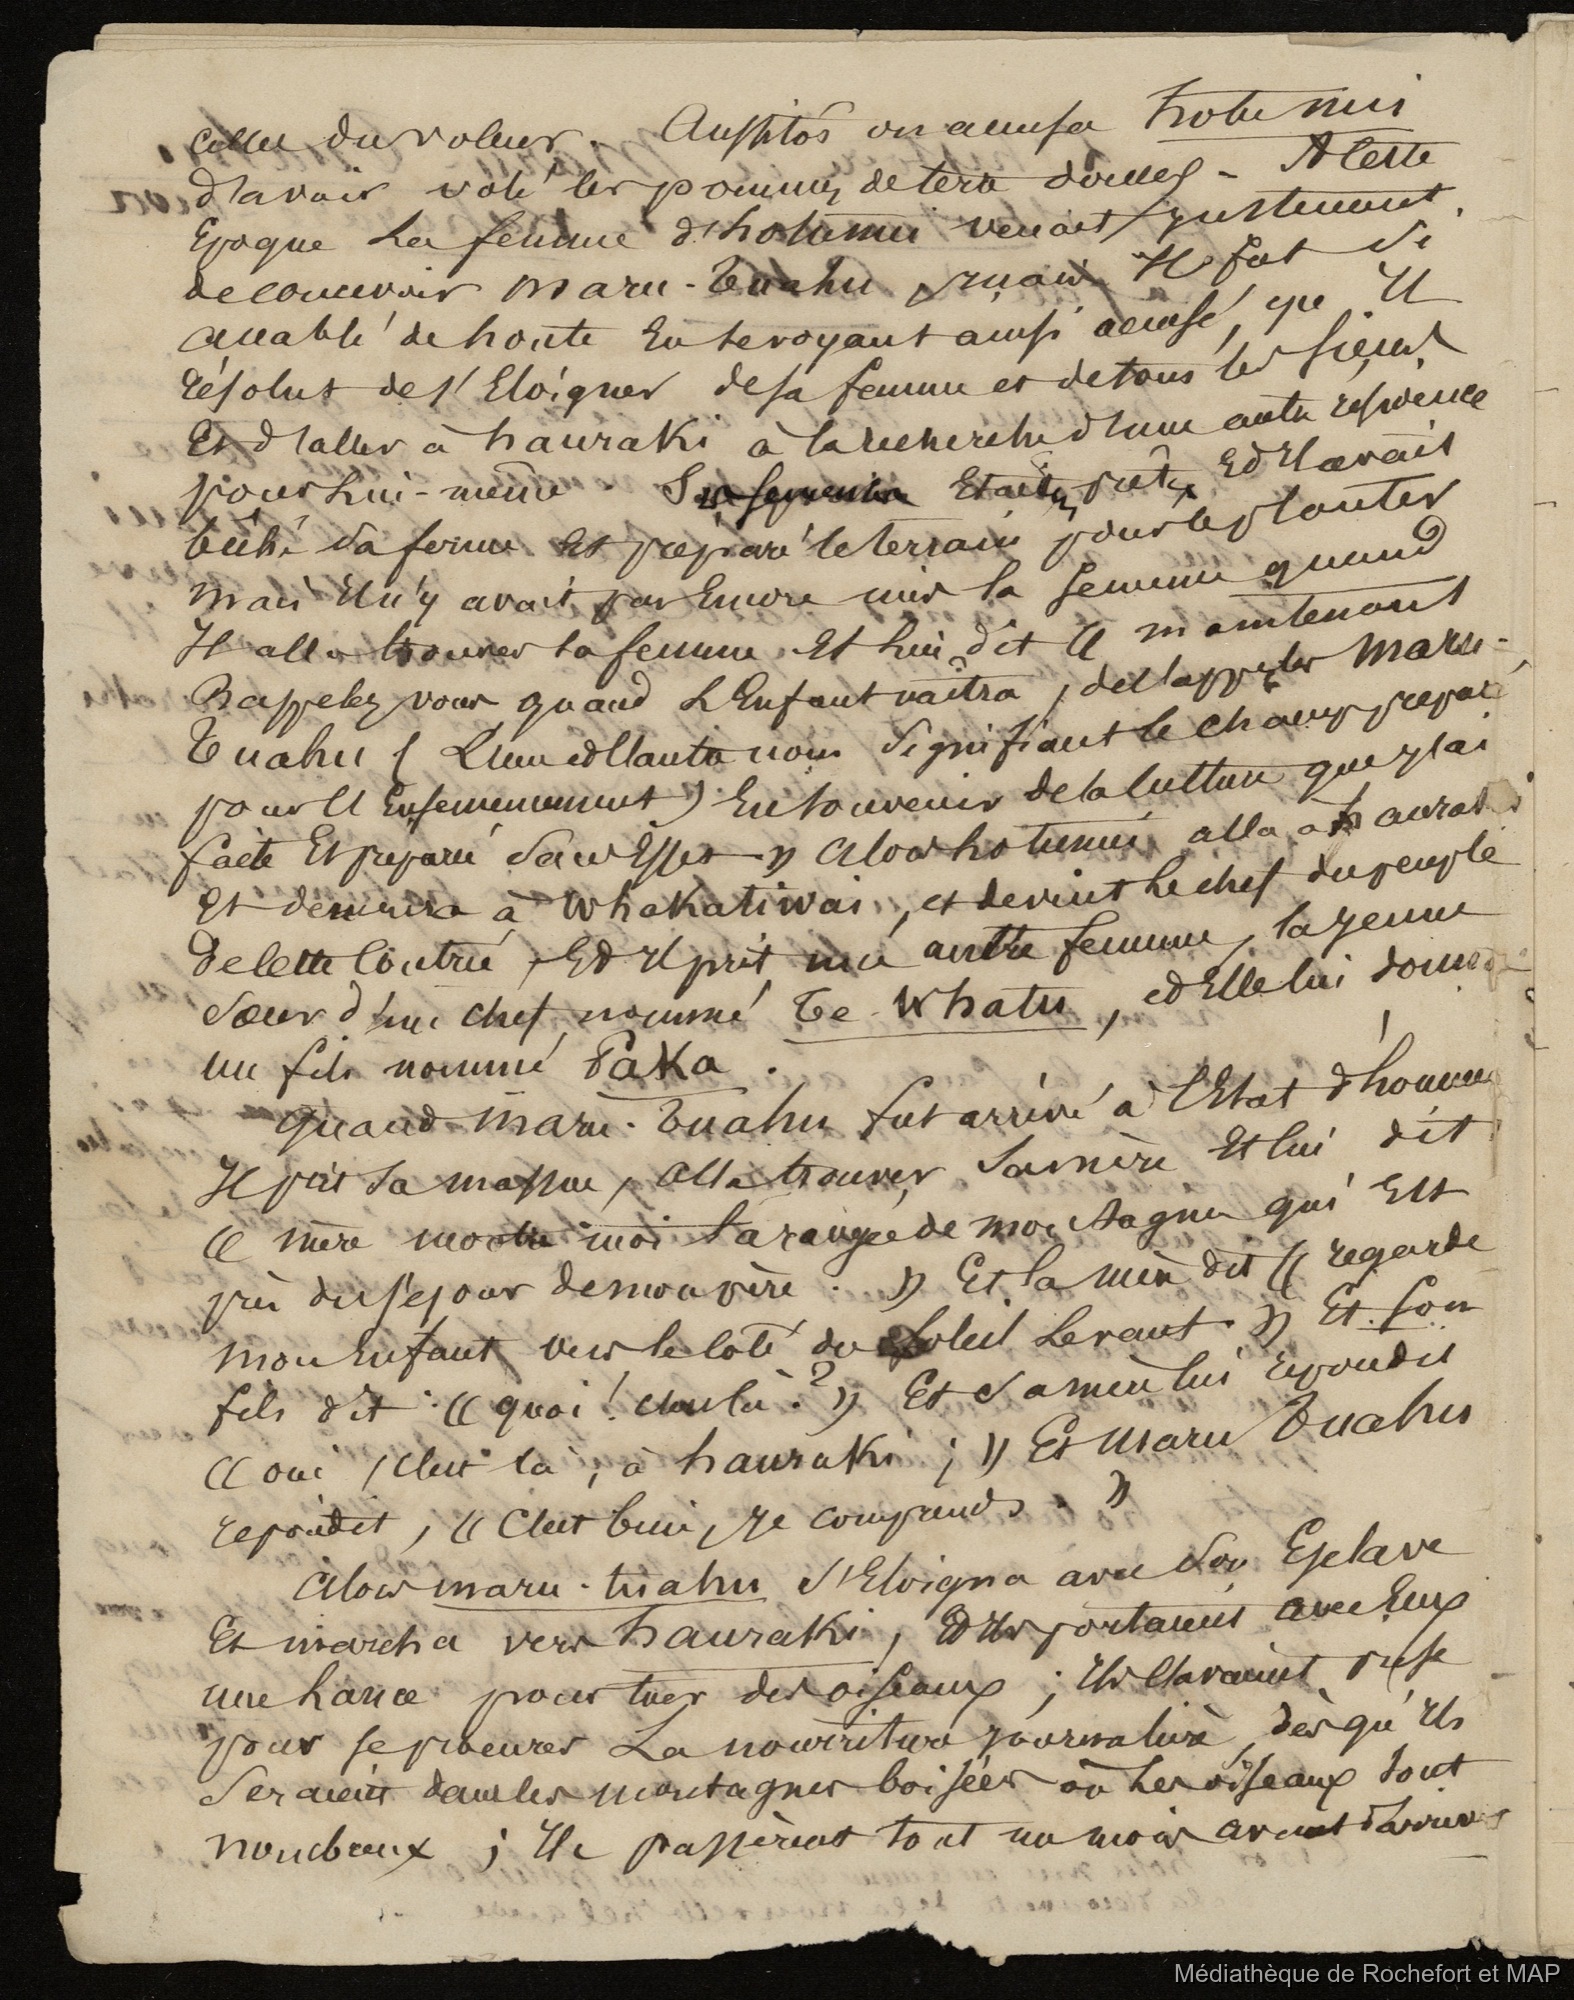 celle du voleur. Aussitôt on accusa hotu nui
d'avoir volé les pommes de terre douces - A cette
Epoque La femme d'hotunui venait justement
de concevoir Maru-Tuahu, mais Il fut si
accablé de honte En se voyant ainsi accusé, que Il
résolut de s'Eloigner de sa femme et de tous les siens
Et d'aller à hauraki à la recherche d'une autre résidence
pour Lui-même. Ses semence Etait prête, Ed Il avait
bêché sa ferme Et préparé le terrain pour le planter
Mais Il n'y avait pas Encore mis la semence quand
Il alla trouver sa femme Et Lui dit « maintenant
Rappelez vous, quand L'Enfant naîtra, de l'appeler Maru-
Tuahu (L'un et l'autre nom signifiant le champ préparé
pour l'Ensemencement) En souvenir de la culture que j'ai
faite Et préparé sans Effet » Alors hotunui alla à hauraki
Et demeura à Whakatiwai, et devint Le chef du peuple
de cette Contrée, Ed Il prit une autre femme, la jeune
sœur d'un chef nommé Te-Whatu, ed Elle lui donna
un fils nommé Paka.
Quand Maru-Tuahu fut arrivé à l'Etat d'homme
Il prit sa massue, alla trouver sa mère Et lui dit
« mère montre moi la rangée de montagne qui Est
près du séjour de mon père. » Et la mère dit « regarde
mon Enfant vers le coté du Soleil Levant. » Et son
fils dit : « quoi ! c'est là ? » Et sa mère lui répondit
« oui, c'est là, à hauraki ; » Et Maru Tuahu
répondit, « C'est bien, je comprends. »
Alors maru-tuahu s'Eloigna avec son Esclave
Et marcha vers hauraki, Ed Ils portaient avec Eux
une Lance pour tuer des oiseaux ; Ils l'avaient prise
pour se procurer La nourriture journalière, dès qu'Ils
seraient dans les montagnes boisées où Les oiseaux sont
nombreux ; Ils passèrent tout un mois avant d'arriver
Médiathèque de Rochefort et MAP